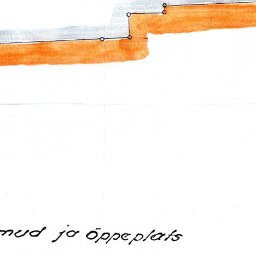 mud ja õppeplats